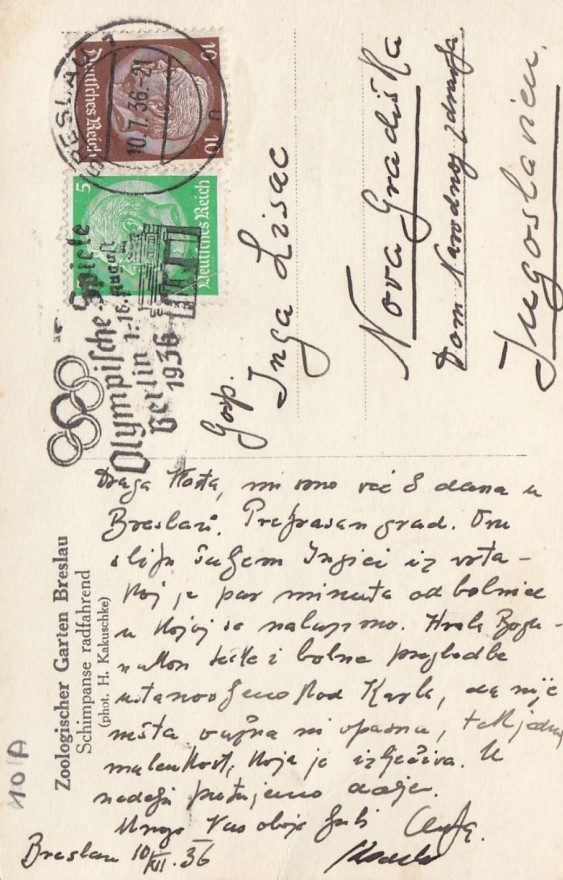 BRESLAU
10.7.36.-21
10 Deutsches Reich 10
5 Deutsches Reich
Olympische Spiele
Berlin 1.-16. August
1936
Gosp.
Inga Lisac
Nova Gradiška
Dom Narodnog zdravlja
Jugoslavien.
Zoologischer Garten Breslau
Schimpanse radfahrend
(phot. H. Kakuschke)
Draga Kosta, mi smo već 8 dana u
Breslau. Prekrasan grad. Ovu
sliku šaljem Ingici iz vrta
koji je par minuta od bolnice
u kojoj se nalazimo. Hvala Bogu
nakon teške i bolne pregledbe
kod Karla, da nije
ništa važna ni opasna, tek jedna
malenkost, koja je izlječiva. U
nedelju putujemo dalje.
Mnogo Vas oboje ljubi
Breslau 10/VII. 36
401A